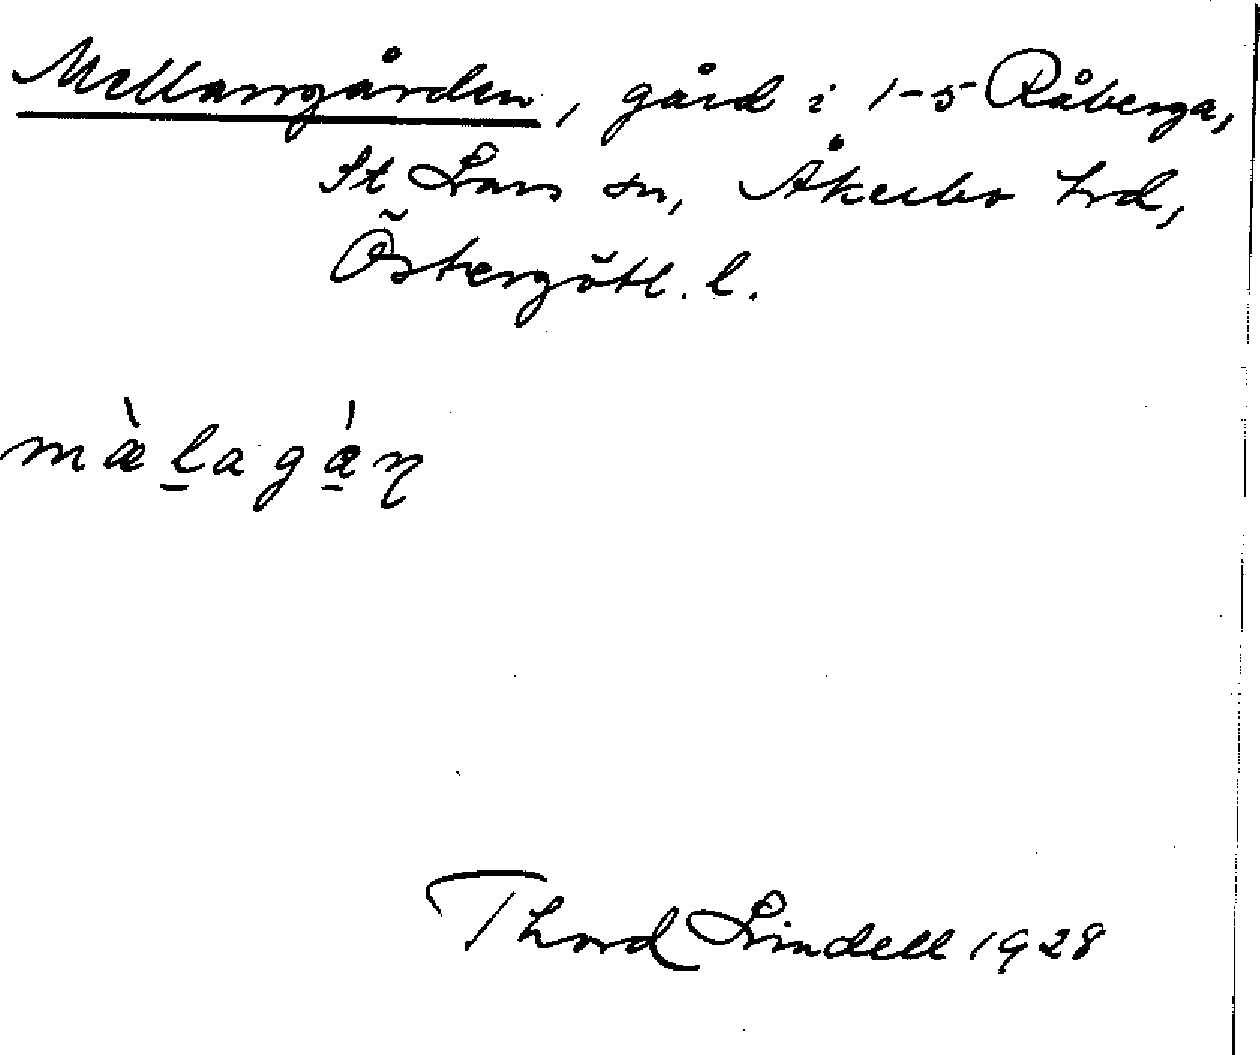 Mellangården, gård i 1-5 Råberga,
St Lars sn, Åkerbo hrd,
Östergötl. l.
mæ̀l̲agá̲ɳ
Thord Lindell 1928